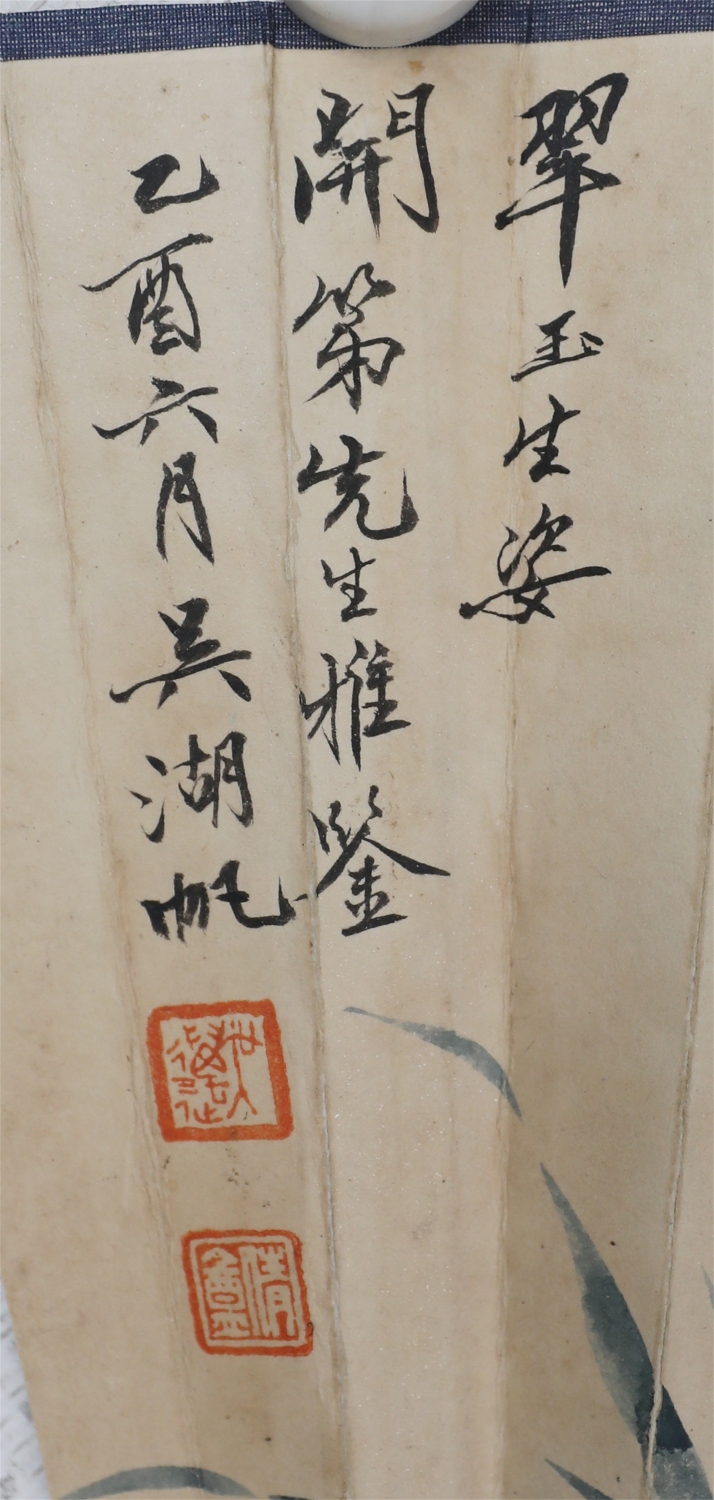 翠玉生姿
開第先生雅鑒
乙酉六月吳湖帆
倩盦